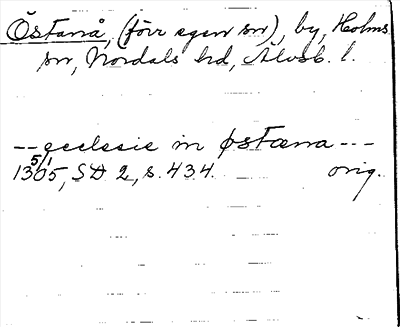 Östanå, (förr egen sn), by, Holms
sn, Nordals hd, Älvsb. l.
-- ecclesie in østæna ---
1305 5/1, SD 2, s. 434. orig.